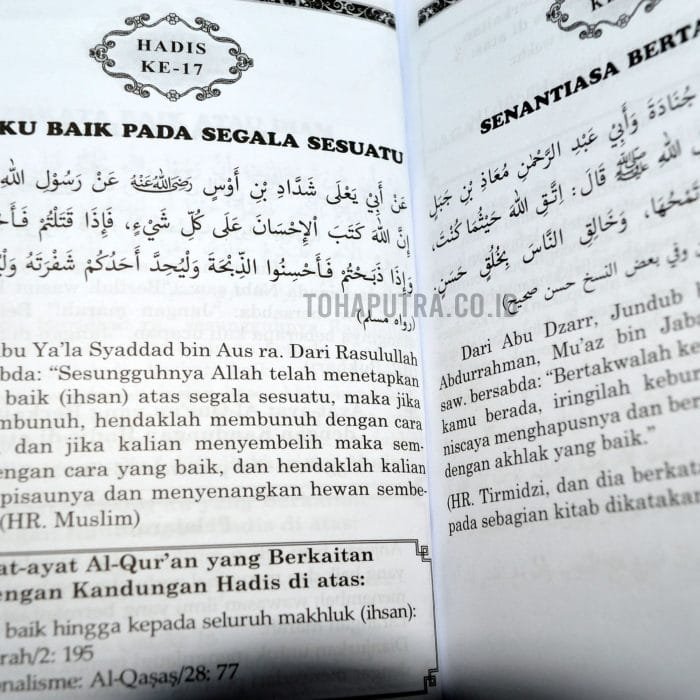 HADIS
KE-17
KU BAIK PADA SEGALA SESUATU
عَنْ أَبِيْ يَعْلَى شَدَّادِ بْنِ أَوْسٍ رَضِيَ اللهُ عَنْهُ عَنْ رَسُوْلِ اللهِ
إِنَّ اللهَ كَتَبَ الْإِحْسَانَ عَلَى كُلِّ شَيْءٍ، فَإِذَا قَتَلْتُمْ
وَإِذَا ذَبَحْتُمْ فَأَحْسِنُوا الذِّبْحَةَ وَلْيُحِدَّ أَحَدُكُمْ شَفْرَتَهُ
(رواه مسلم)
bu Ya'la Syaddad bin Aus ra. Dari Rasulullah
bda: “Sesungguhnya Allah telah menetapkan
baik (ihsan) atas segala sesuatu, maka jika
mbunuh, hendaklah membunuh dengan cara
dan jika kalian menyembelih maka sem-
engan cara yang baik, dan hendaklah kalian
pisaunya dan menyenangkan hewan sembe-
(HR. Muslim)
at-ayat Al-Qur'an yang Berkaitan
engan Kandungan Hadis di atas:
baik hingga kepada seluruh makhluk (ihsan):
rah/2: 195
onalisme: Al-Qaṣaṣ/28: 77
SENANTIASA BERTA
جُنَادَةَ وَأَبِيْ عَبْدِ الرَّحْمٰنِ مُعَاذِ بْنِ جَبَلٍ
اللهِ ﷺ قَالَ: اِتَّقِ اللهَ حَيْثُمَا كُنْتَ،
وَخَالِقِ النَّاسَ بِخُلُقٍ حَسَنٍ
وفي بعض النسخ حسن صحيح)
Dari Abu Dzarr, Jundub b
Abdurrahman, Mu'az bin Jaba
saw. bersabda: “Bertakwalah ke
kamu berada, iringilah kebur
niscaya menghapusnya dan ber
dengan akhlak yang baik.”
(HR. Tirmidzi, dan dia berkat
pada sebagian kitab dikatakar
TOHAPUTRA.CO.ID